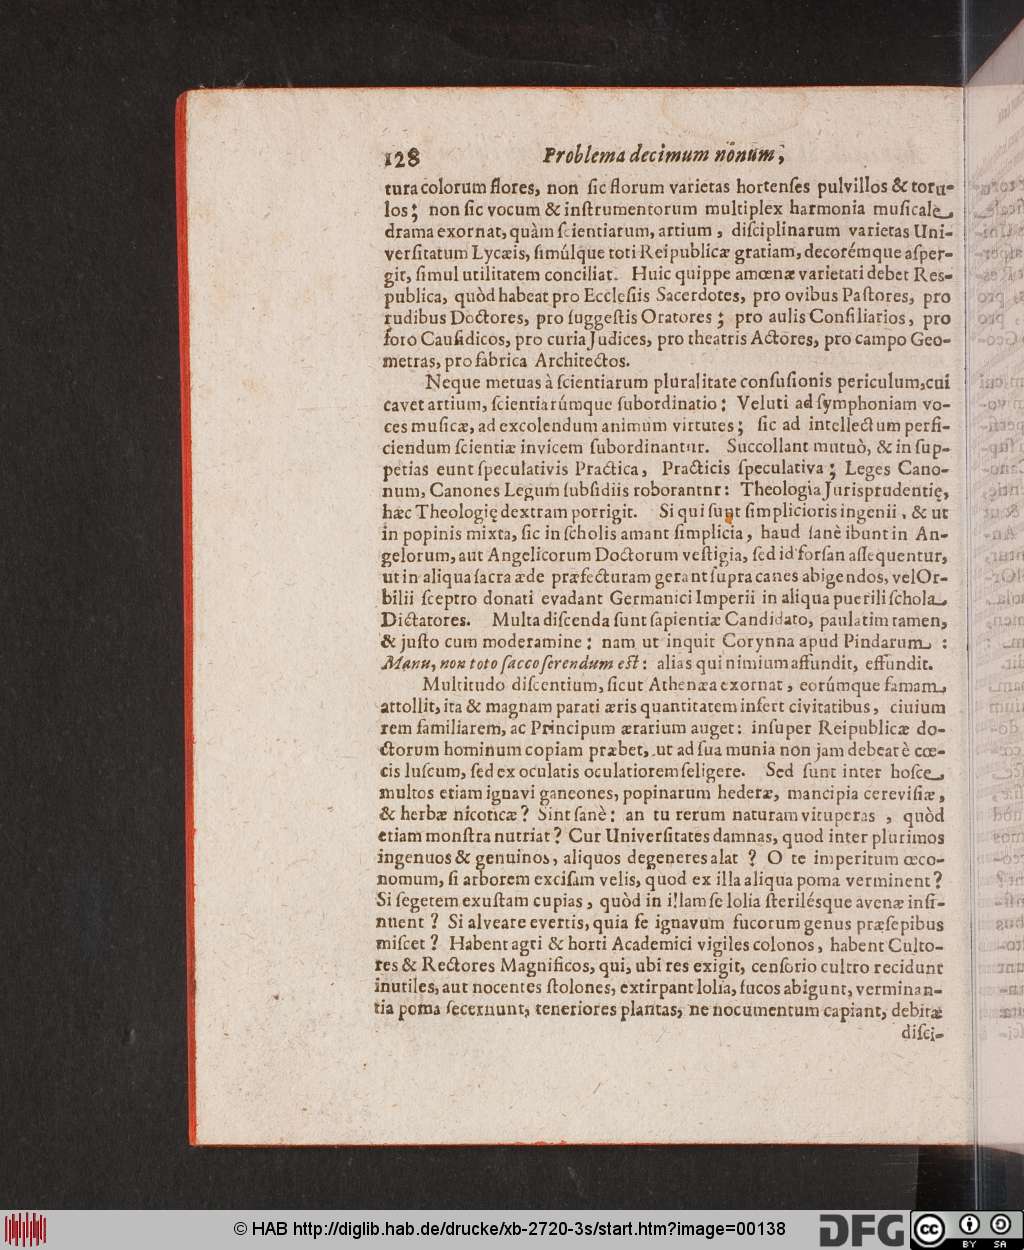 128 Problema decimum nonum,
tura colorum flores, non ſic florum varietas hortenſes pulvillos & toru-
los; non ſic vocum & inſtrumentorum multiplex harmonia muſicale
drama exornat, quàm ſcientiarum, artium, diſciplinarum varietas Uni-
verſitatum Lycæis, ſimúlque toti Reipublicæ gratiam, decorémque aſper-
git, ſimul utilitatem conciliat. Huic quippe amœnæ varietati debet Res-
publica, quòd habeat pro Eccleſiis Sacerdotes, pro ovibus Paſtores, pro
rudibus Doctores, pro ſuggeſtis Oratores; pro aulis Conſiliarios, pro
foro Cauſidicos, pro curia Judices, pro theatris Actores, pro campo Geo-
metras, pro fabrica Architectos.
Neque metuas à ſcientiarum pluralitate confuſionis periculum, cui
cavet artium, ſcientiarúmque ſubordinatio: Veluti ad ſymphoniam vo-
ces muſicæ, ad excolendum animum virtutes; ſic ad intellectum perfi-
ciendum ſcientiæ invicem ſubordinantur. Succollant mutuò, & in ſup-
petias eunt ſpeculativis Practica, Practicis ſpeculativa; Leges Cano-
num, Canones Legum ſubſidiis roborantnr: Theologia Jurisprudentię,
hæc Theologię dextram porrigit. Si qui ſunt ſimplicioris ingenii, & ut
in popinis mixta, ſic in ſcholis amant ſimplicia, haud ſanè ibunt in An-
gelorum, aut Angelicorum Doctorum veſtigia, ſed id forſan aſſequentur,
ut in aliqua ſacra æde præfecturam gerant ſupra canes abigendos, vel Or-
bilii ſceptro donati evadant Germanici Imperii in aliqua puerili ſchola
Dictatores. Multa diſcenda ſunt ſapientiæ Candidato, paulatim tamen,
& juſto cum moderamine: nam ut inquit Corynna apud Pindarum :
Manu, non toto ſacco ſerendum eſt: alias qui nimium affundit, effundit.
Multitudo diſcentium, ſicut Athenæa exornat, eorúmque famam
attollit, ita & magnam parati æris quantitatem infert civitatibus, civium
rem familiarem, ac Principum ærarium auget: inſuper Reipublicæ do-
ctorum hominum copiam præbet, ut ad ſua munia non jam debeat è cœ-
cis luſcum, ſed ex oculatis oculatiorem ſeligere. Sed ſunt inter hoſce
multos etiam ignavi ganeones, popinarum hederæ, mancipia cereviſiæ,
& herbæ nicoticæ? Sint ſanè: an tu rerum naturam vituperas, quòd
etiam monſtra nutriat? Cur Univerſitates damnas, quod inter plurimos
ingenuos & genuinos, aliquos degeneres alat? O te imperitum œco-
nomum, ſi arborem exciſam velis, quod ex illa aliqua poma verminent?
Si ſegetem exuſtam cupias, quòd in illam ſe lolia ſterilésque avenæ inſi-
nuent? Si alveare evertis, quia ſe ignavum fucorum genus præſepibus
miſcet? Habent agri & horti Academici vigiles colonos, habent Culto-
res & Rectores Magnificos, qui, ubi res exigit, cenſorio cultro recidunt
inutiles, aut nocentes ſtolones, extirpant lolia, fucos abigunt, verminan-
tia poma ſecernunt, teneriores plantas, ne nocumentum capiant, debitæ
diſci-
© HAB http://diglib.hab.de/drucke/xb-2720-3s/start.htm?image=00138
DFG
cc BY SA